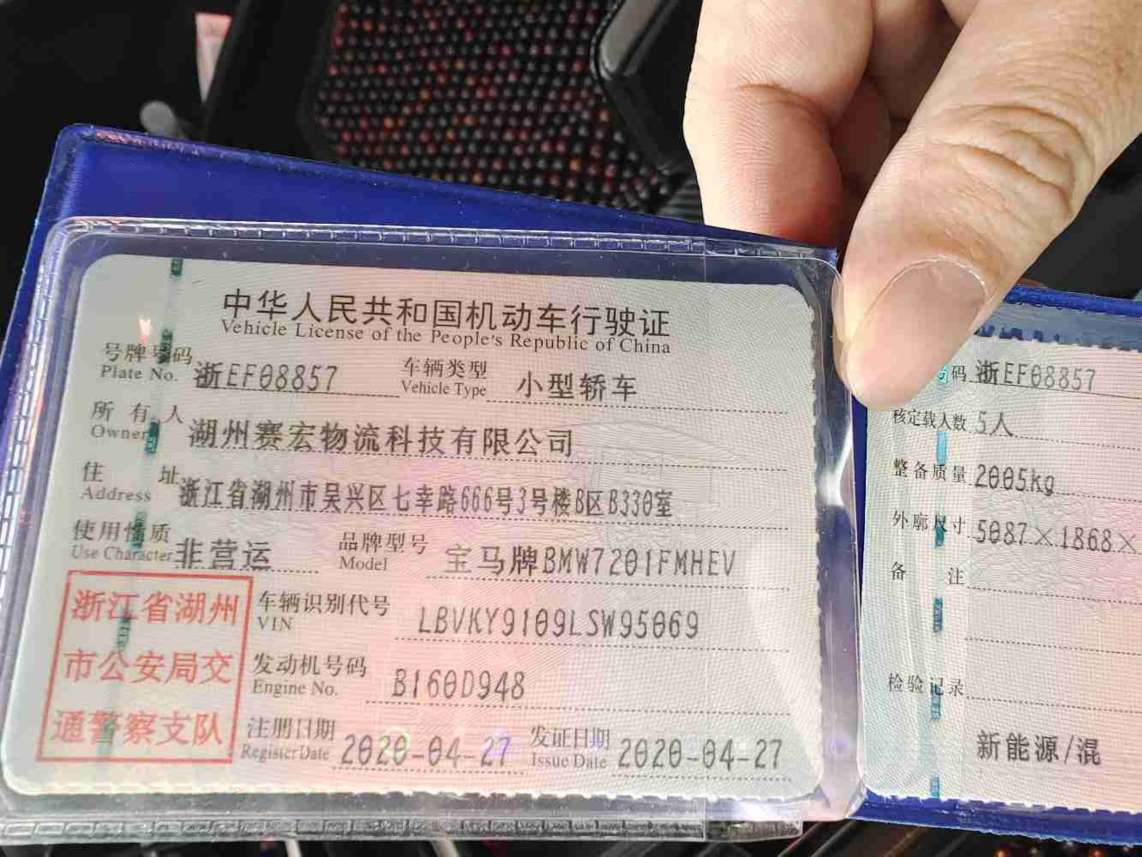 中华人民共和国机动车行驶证
Vehicle License of the People's Republic of China
号牌号码 浙EF08857 车辆类型 小型轿车
Plate No. Vehicle Type
所有人 湖州赛宏物流科技有限公司
Owner
住址 浙江省湖州市吴兴区七幸路666号3号楼B区B330室
Address
使用性质 非营运 品牌型号 宝马牌BMW7201FMHEV
Use Character Model
浙江省湖州
市公安局交
通警察支队
车辆识别代号 LBVKY9109LSW95069
VIN
发动机号码 B160D948
Engine No.
注册日期 2020-04-27 发证日期 2020-04-27
Register Date Issue Date
号码 浙EF08857
核定载人数 5人
整备质量 2005kg
外廓尺寸 5087×1868×
备注
检验记录
新能源/混